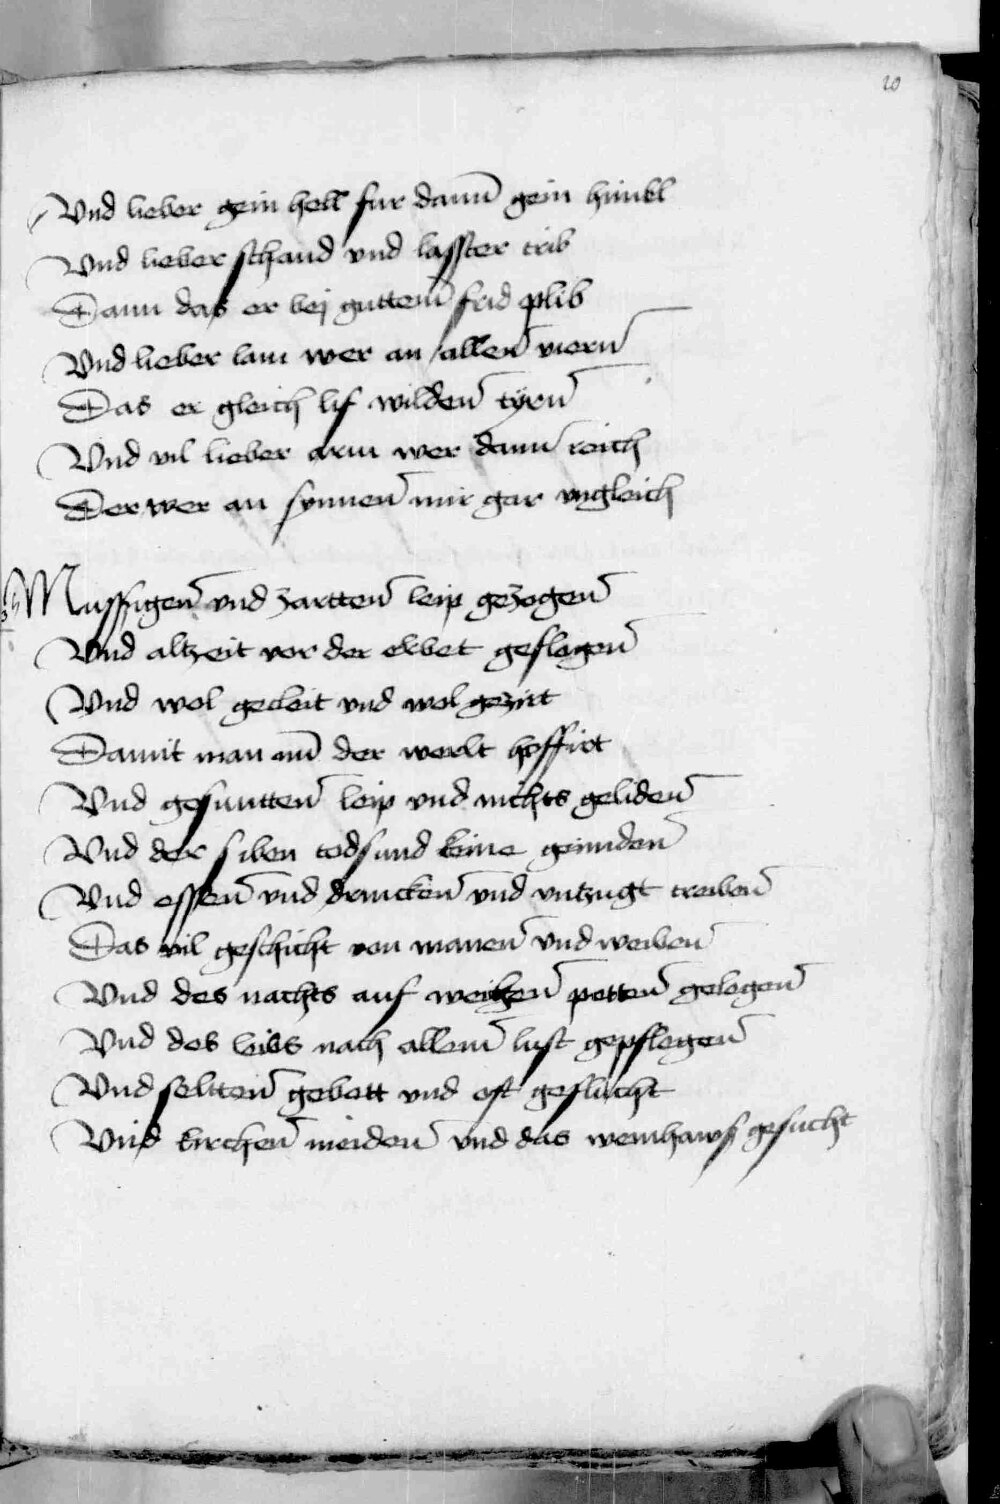 20
Vnd lieber gein hell fur dann gein himel
Vnd lieber schand vnd lasster trib
Dann das er bej guttem frid plib
Vnd lieber lam wer an allen viern
Das er gleich lif wilden tyrn
Vnd vil lieber arm wer dann reich
Der wer an synnen mir gar vngleich
Mussigen vnd zartten leip gezogen
Vnd altzeit vor der erbet geflogen
Vnd wol gecleit vnd wol gezirt
Damit man inn der werlt hoffirt
Vnd gesuntten leip vnd nichts geliden
Vnd der siben todsund keine gemiden
Vnd essen vnd drincken vnd vntzugt treiben
Das vil geschicht von mannen vnd weiben
Vnd des nachts auf weichen petten gelegen
Vnd des leibs nach allem lust gepflegen
Vnd seltten gebett vnd oft geflucht
Vnd kirchen meiden vnd das weinhaws gesucht